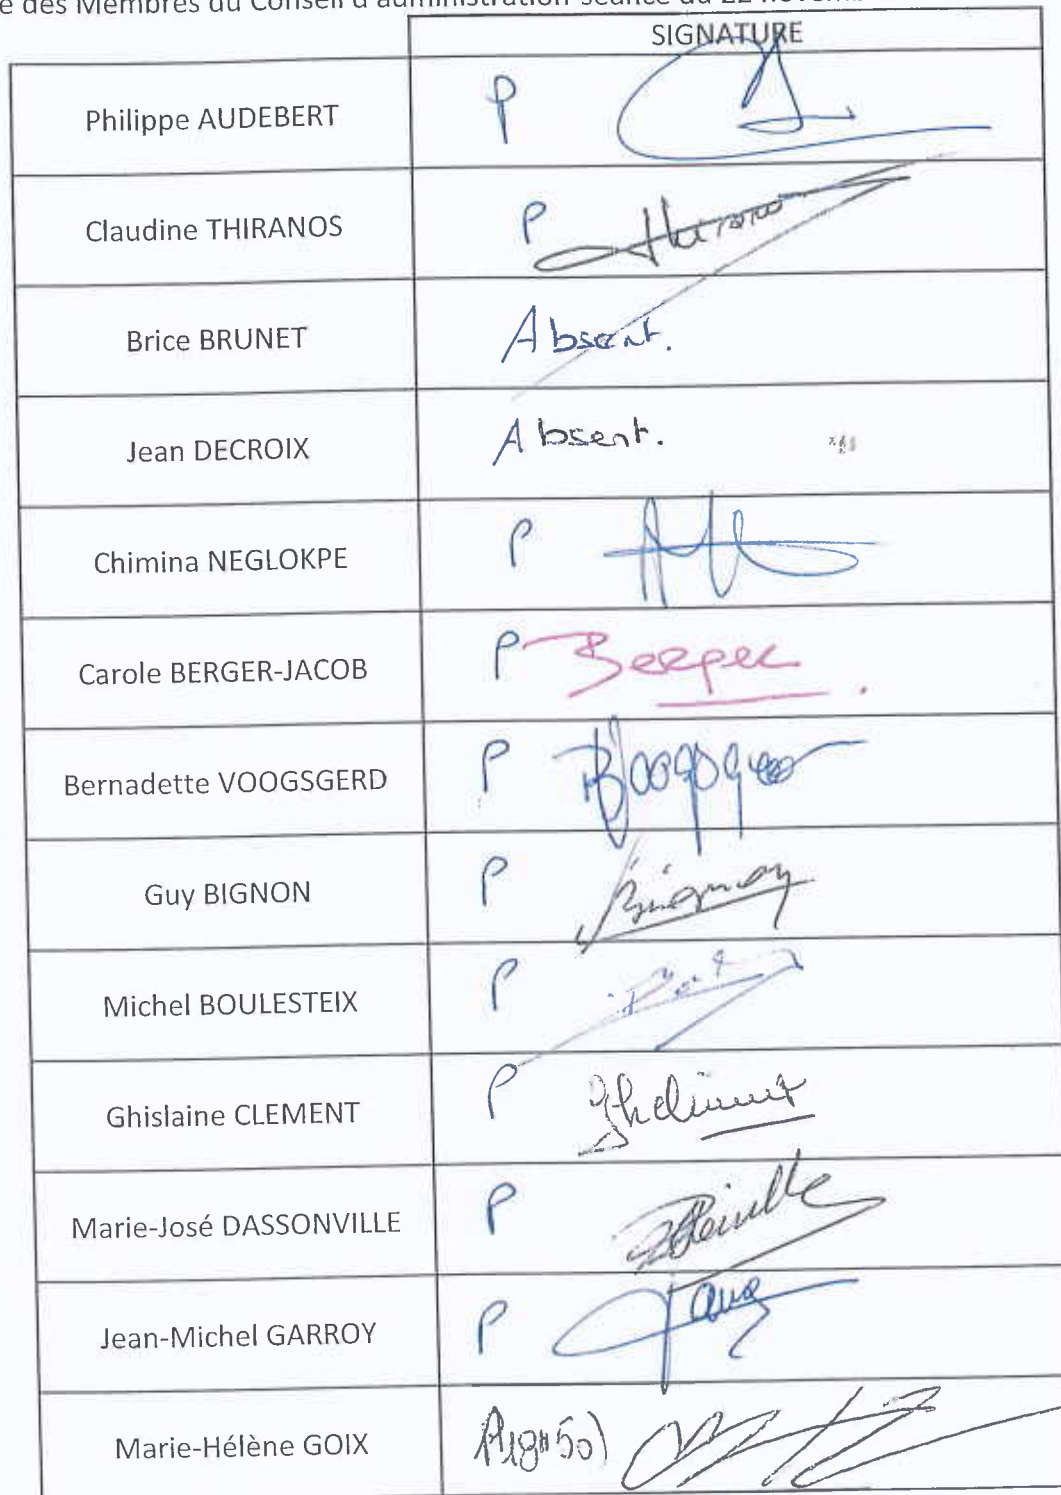 des Membres du Conseil d'administration séance du 22 novem
SIGNATURE
Philippe AUDEBERT P
Claudine THIRANOS P
Brice BRUNET Absent.
Jean DECROIX Absent.
Chimina NEGLOKPE P
Carole BERGER-JACOB P Berger
Bernadette VOOGSGERD P
Guy BIGNON P Bignon
Michel BOULESTEIX P
Ghislaine CLEMENT P
Marie-José DASSONVILLE P
Jean-Michel GARROY P
Marie-Hélène GOIX